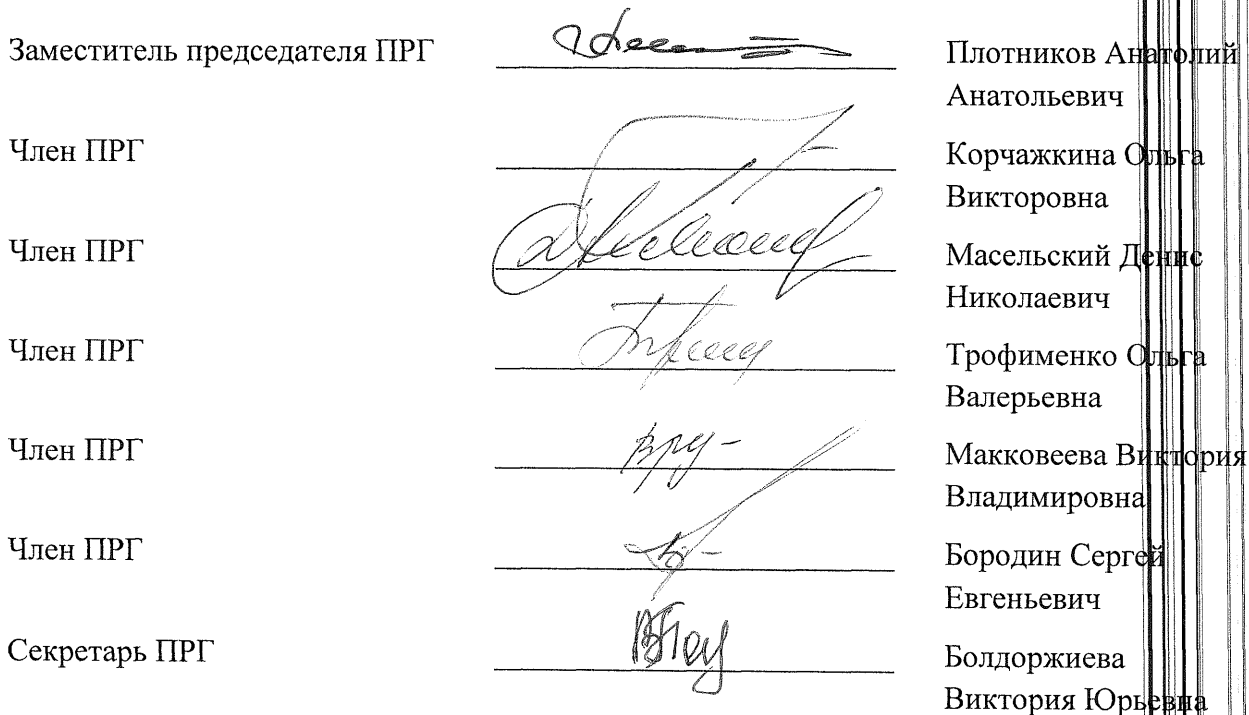 Заместитель председателя ПРГ Плотников Анатолий
Анатольевич
Член ПРГ Корчажкина Ольга
Викторовна
Член ПРГ Масельский Денис
Николаевич
Член ПРГ Трофименко Ольга
Валерьевна
Член ПРГ Макковеева Виктория
Владимировна
Член ПРГ Бородин Сергей
Евгеньевич
Секретарь ПРГ Болдоржиева
Виктория Юрьевна